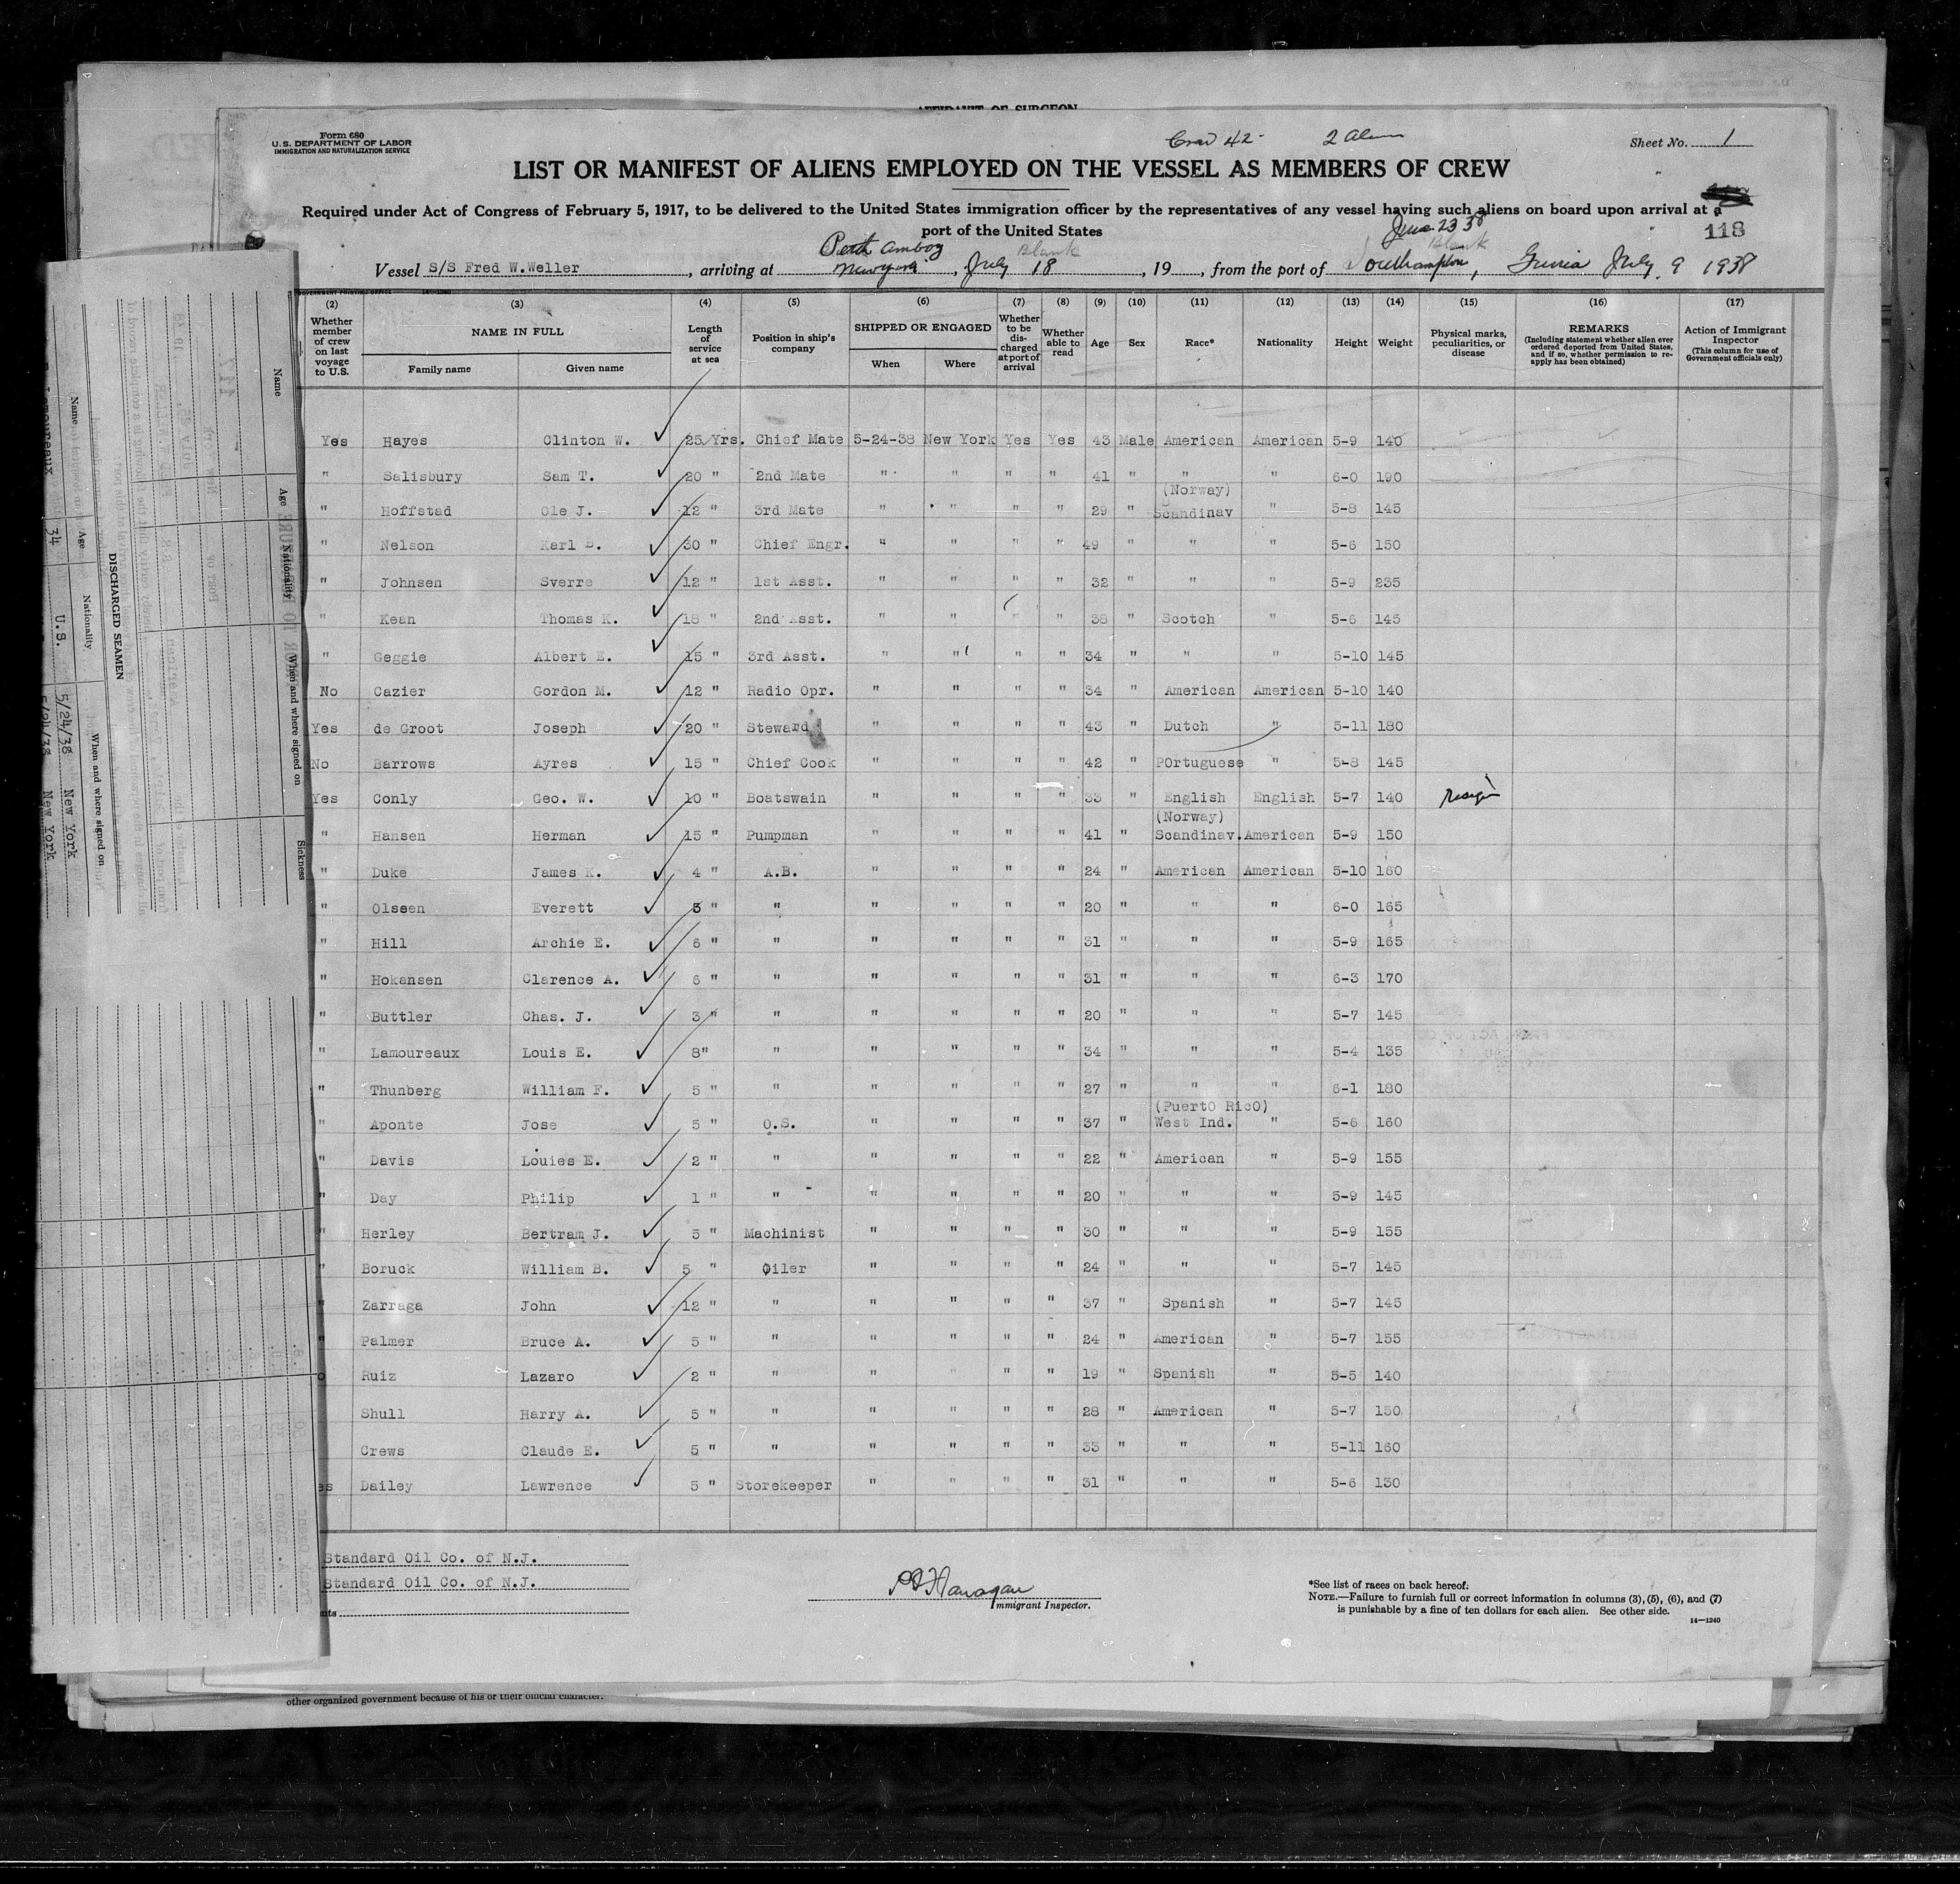 AFFIDAVIT OF SURGEON
Form 680
U.S. DEPARTMENT OF LABOR
IMMIGRATION AND NATURALIZATION SERVICE
Crew 42 - 2 Alien
Sheet No. 1
LIST OR MANIFEST OF ALIENS EMPLOYED ON THE VESSEL AS MEMBERS OF CREW
Required under Act of Congress of February 5, 1917, to be delivered to the United States immigration officer by the representatives of any vessel having such aliens on board upon arrival at a
port of the United States
118
June 23 38
Perth Amboy Blank Blank
Vessel S/S Fred W.Weller, arriving at New York, July 18, 19, from the port of Southampton, Guiria July 9 1938
(2) (3) (4) (5) (6) (7) (8) (9) (10) (11) (12) (13) (14) (15) (16) (17)
Whether member of crew on last voyage to U.S. NAME IN FULL Family name Given name Length of service at sea Position in ship's company SHIPPED OR ENGAGED When Where Whether to be discharged at port of arrival Whether able to read Age Sex Race* Nationality Height Weight Physical marks, peculiarities, or disease REMARKS (Including statement whether alien ever ordered deported from United States, and if so, whether permission to reapply has been obtained) Action of Immigrant Inspector (This column for use of Government officials only)
Yes Hayes Clinton W. 25 Yrs. Chief Mate 5-24-38 New York Yes Yes 43 Male American American 5-9 140
" Salisbury Sam T. 20 " 2nd Mate " " " " 41 " " " 6-0 190
(Norway)
" Hoffstad Ole J. 12 " 3rd Mate " " " " 29 " Scandinav " 5-8 145
" Nelson Karl B. 30 " Chief Engr. " " " " 49 " " " 5-6 150
" Johnsen Sverre 12 " 1st Asst. " " " " 32 " " " 5-9 235
" Kean Thomas K. 18 " 2nd Asst. " " " " 38 " Scotch " 5-6 145
" Geggie Albert E. 15 " 3rd Asst. " " " " 34 " " " 5-10 145
No Cazier Gordon M. 12 " Radio Opr. " " " " 34 " American American 5-10 140
Yes de Groot Joseph 20 " Steward " " " " 43 " Dutch " 5-11 180
No Barrows Ayres 15 " Chief Cook " " " " 42 " POrtuguese " 5-8 145
Yes Conly Geo. W. 10 " Boatswain " " " " 33 " English English 5-7 140
(Norway)
" Hansen Herman 15 " Pumpman " " " " 41 " Scandinav. American 5-9 150
" Duke James K. 4 " A.B. " " " " 24 " American American 5-10 160
" Olssen Everett 5 " " " " " " 20 " " " 6-0 165
" Hill Archie E. 6 " " " " " " 31 " " " 5-9 165
" Hokansen Clarence A. 6 " " " " " " 31 " " " 6-3 170
" Buttler Chas. J. 3 " " " " " " 20 " " " 5-7 145
" Lamoureaux Louis E. 8" " " " " " 34 " " " 5-4 135
" Thunberg William F. 5 " " " " " " 27 " " " 6-1 180
(PuertO RicO)
" Aponte Jose 5 " O.S. " " " " 37 " West Ind. " 5-6 160
" Davis Louies E. 2 " " " " " " 22 " American " 5-9 155
" Day Philip 1 " " " " " " 20 " " " 5-9 145
" Herley Bertram J. 5 " Machinist " " " " 30 " " " 5-9 155
" Boruck William B. 5 " Oiler " " " " 24 " " " 5-7 145
" Zarraga John 12 " " " " " " 37 " Spanish " 5-7 145
" Palmer Bruce A. 5 " " " " " " 24 " American " 5-7 155
Ruiz Lazaro 2 " " " " " " 19 " Spanish " 5-5 140
Shull Harry A. 5 " " " " " " 28 " American " 5-7 150
Crews Claude E. 5 " " " " " " 33 " " " 5-11 160
es Dailey Lawrence 5 " Storekeeper " " " " 31 " " " 5-6 130
Standard Oil Co. of N.J.
Standard Oil Co. of N.J.
nts
Flanagan
Immigrant Inspector.
*See list of races on back hereof.
NOTE.—Failure to furnish full or correct information in columns (3), (5), (6), and (7)
is punishable by a fine of ten dollars for each alien. See other side.
14—1240
other organized government because of his or their official character.
DISCHARGED SEAMEN
Name Age Nationality When and where signed on
Lamoureaux 34 U.S. 5/24/38 New York
5/24/38 New York
Name Age Nationality When and where signed on Sickness